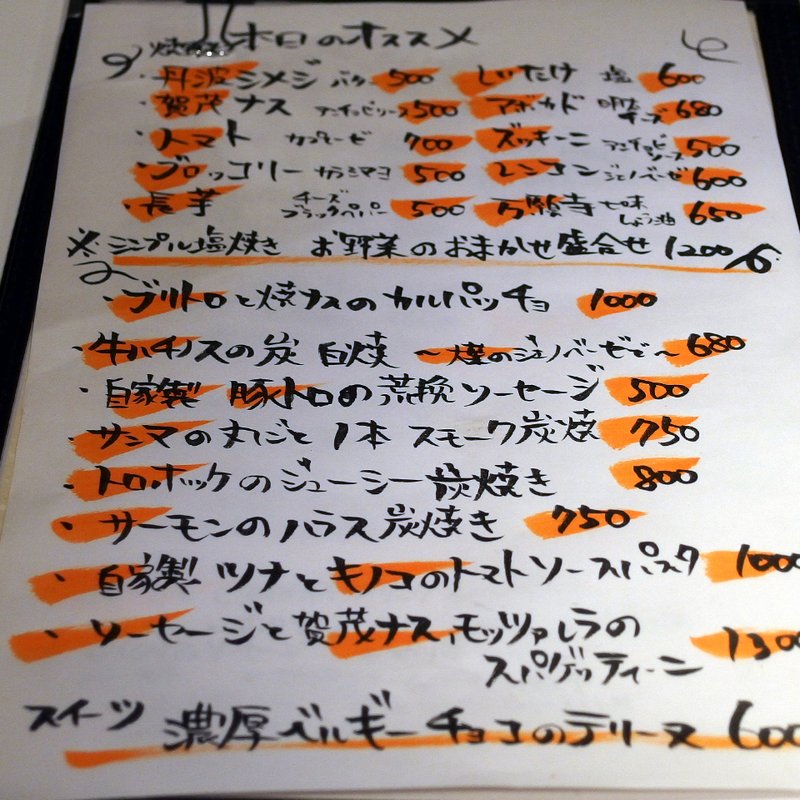 本日のオススメ
・丹波シメジ バター 500 しいたけ 塩 600
・賀茂ナス アンチョビソース 500 アボカド 明太チーズ 680
・トマト カプレーゼ 700 ズッキーニ アンチョビソース 500
・ブロッコリー カラシマヨ 500 レンコン ジェノベーゼ 600
・長芋 チーズブラックペパー 500 万願寺 七味しょう油 650
※シンプル塩焼き お野菜のおまかせ盛合せ 1200
・ブリトロと焼ナスのカルパッチョ 1000
・牛ハチノスの炭白焼 〜燻のジェノベーゼで〜 680
・自家製 豚トロの荒挽ソーセージ 500
・サンマの丸ごと1本 スモーク炭焼 750
・トロホッケのジューシー炭焼き 800
・サーモンのハラス炭焼き 750
・自家製ツナとキノコのトマトソースパスタ 1000
・ソーセージと賀茂ナス、モッツァレラの
スパゲッティーニ 1300
スイーツ 濃厚ベルギーチョコのテリーヌ 600